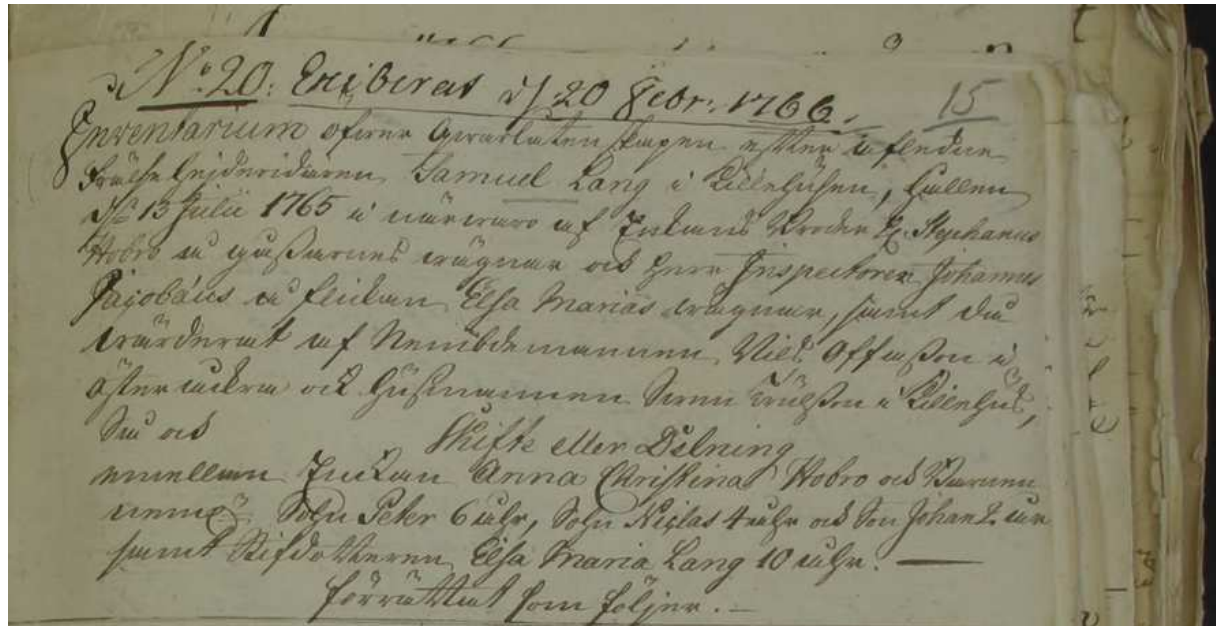 No: 20: Exiberat d/ 20 Febr: 1766. 15
Inventarium öfwer Qwarlåtenskapen efter afledne
Frälse Hejderidaren Samuel Lang i Lillehusen, hållen
d: 13 Julii 1765 i närwaro af Enkans Broder H. Stephanus
Hobro å gossarnes wägnar och Herr Inspectoren Johannes
Jacobæus å flickan Elsa Marias wägnar, samt
wärderat af Nembdemannen Nils Offasson i
Österåckra och Husmannen Swen Trulsson i Lillehus,
Samt och Skifte eller Delning
emellan Enkan Anna Christina Hobro och Barnen
Sohn Peter 6 åhr, Sohn Niclas 4 åhr och Son Johan 2 åhr
samt Stifdotteren Elsa Maria Lang 10 åhr. —
förrättat som följer. —